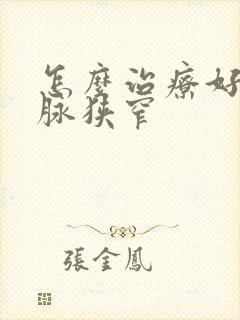 怎麼治療好
脈狹窄
張金鳳